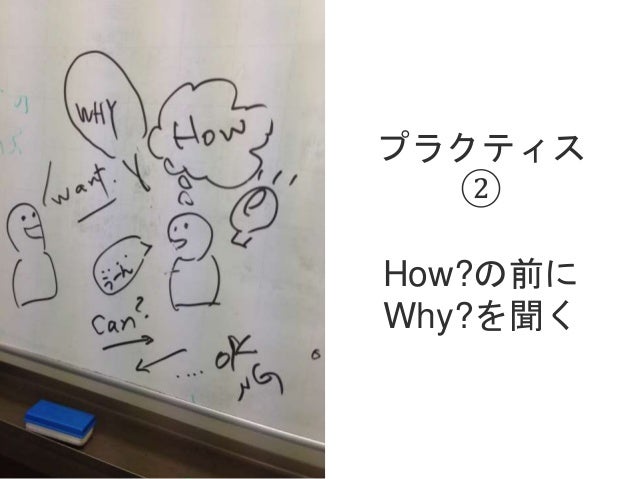 WHY
How
want.
うーん
can?
.... OK
NG
プラクティス
②
How?の前に
Why?を聞く